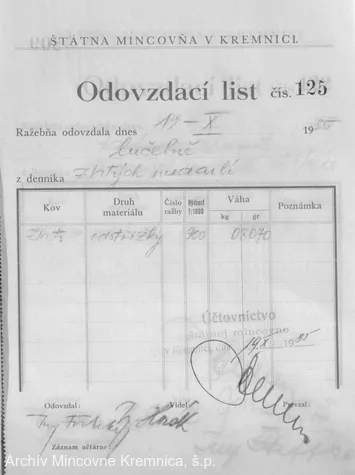 ŠTÁTNA MINCOVŇA V KREMNICI.
Odovzdací list čís. 125
Ražebňa odovzdala dnes 19 – X 1935
z denníka zlatých
Kov
Druh materiálu
Číslo ražby
Rýdzosť 1:1000
Váha
kg gr
Poznámka
odstrižky 900
Účtovníctvo
štátnej mincovne
v Kremnici, dňa 19/X 1935
Odovzdal: Videl: Prevzal:
Záznam učtárne:
Archív Mincovne Kremnica, š.p.